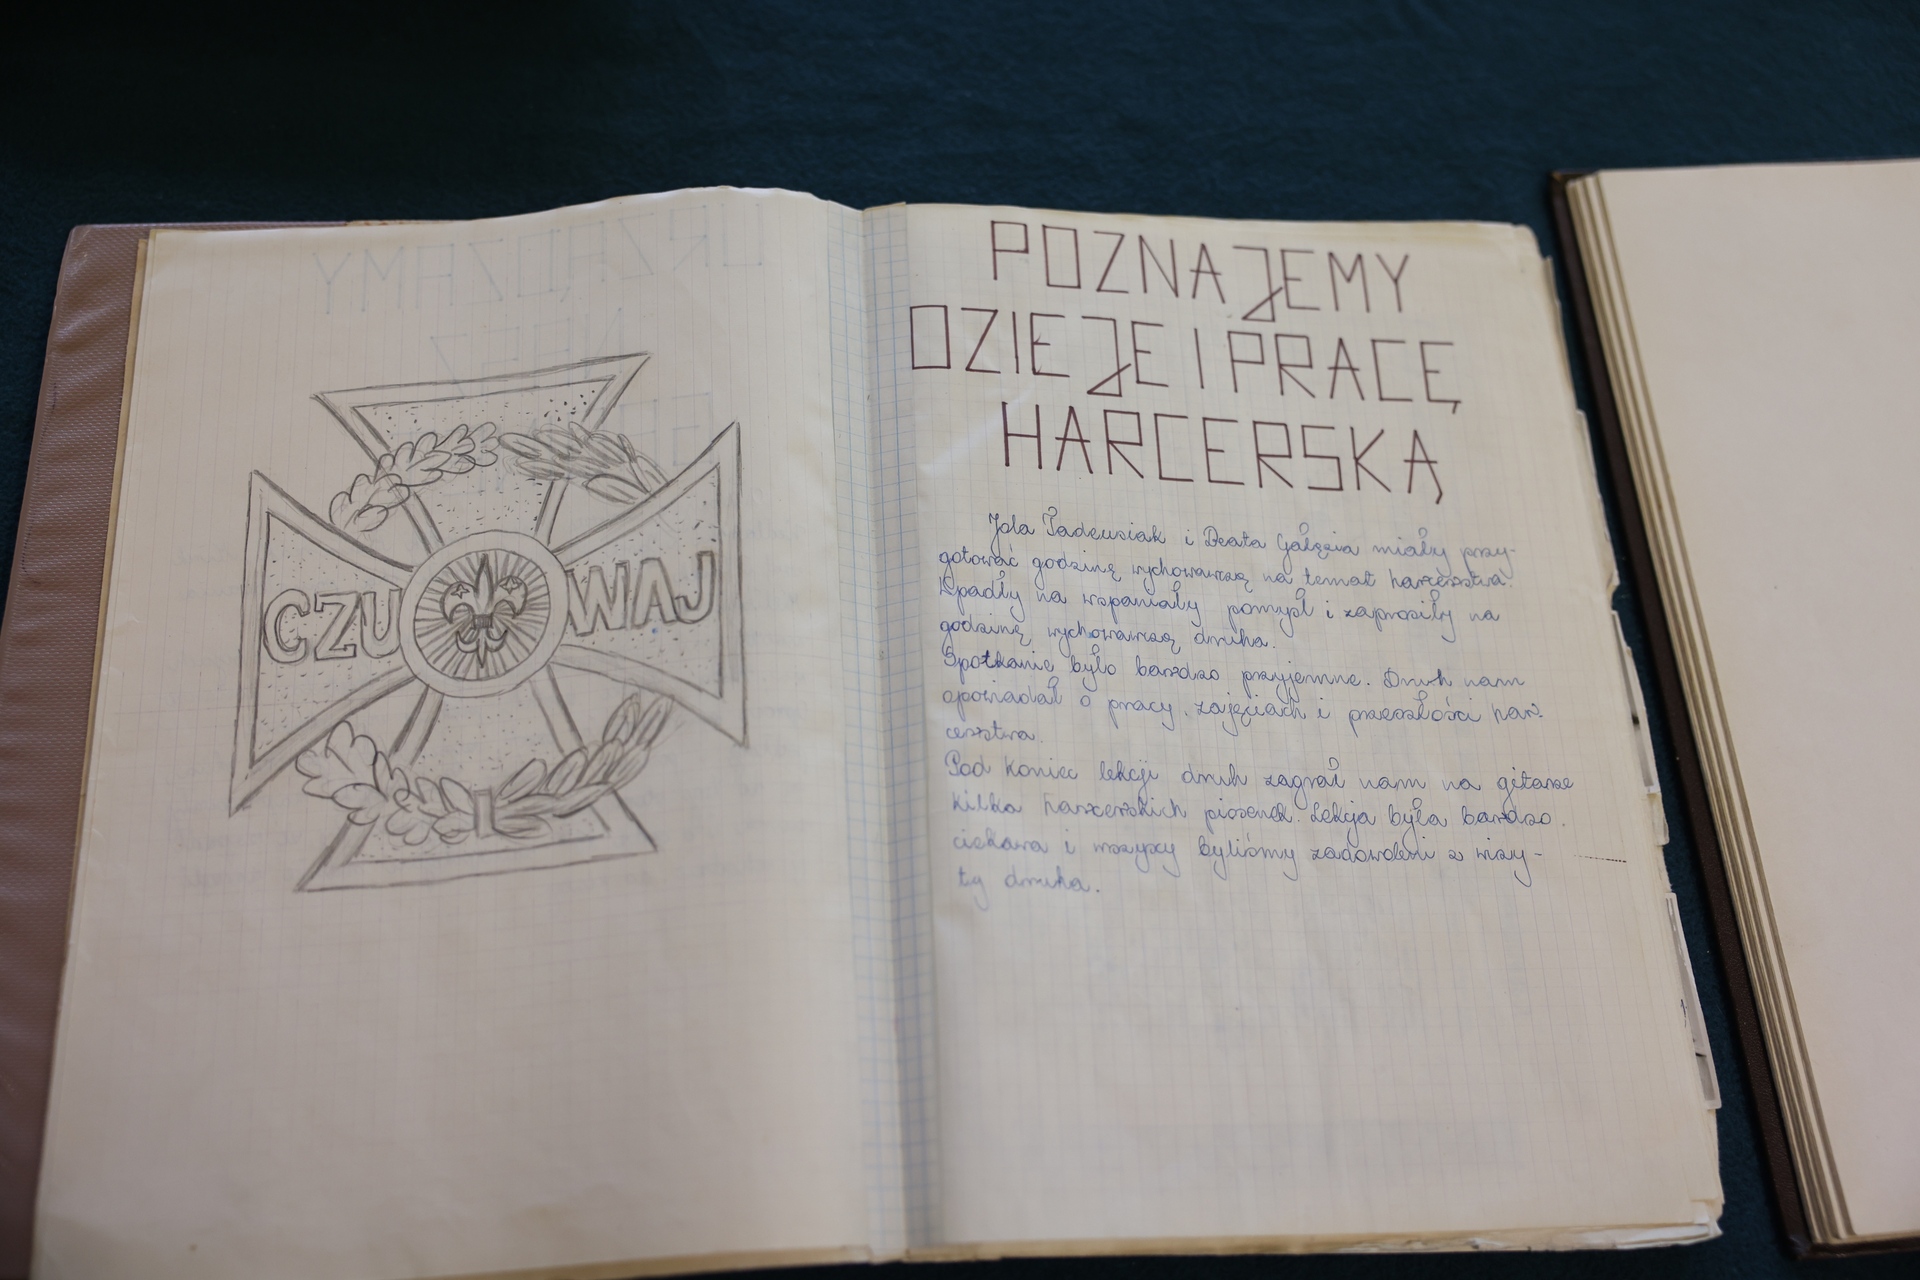 CZUWAJ
POZNAJEMY
DZIEJE I PRACĘ
HARCERSKĄ
Jola Tadeusiak i Beata Gałęzia miały przy-
gotować godzinę wychowawczą na temat harcerstwa.
Wpadły na wspaniały pomysł i zaprosiły na
godzinę wychowawczą druha.
Spotkanie było bardzo przyjemne. Druh nam
opowiadał o pracy, zajęciach i przeszłości har-
cerstwa.
Pod koniec lekcji druh zagrał nam na gitarze
kilka harcerskich piosenek. Lekcja była bardzo
ciekawa i wszyscy byliśmy zadowoleni z wizy-
ty druha.